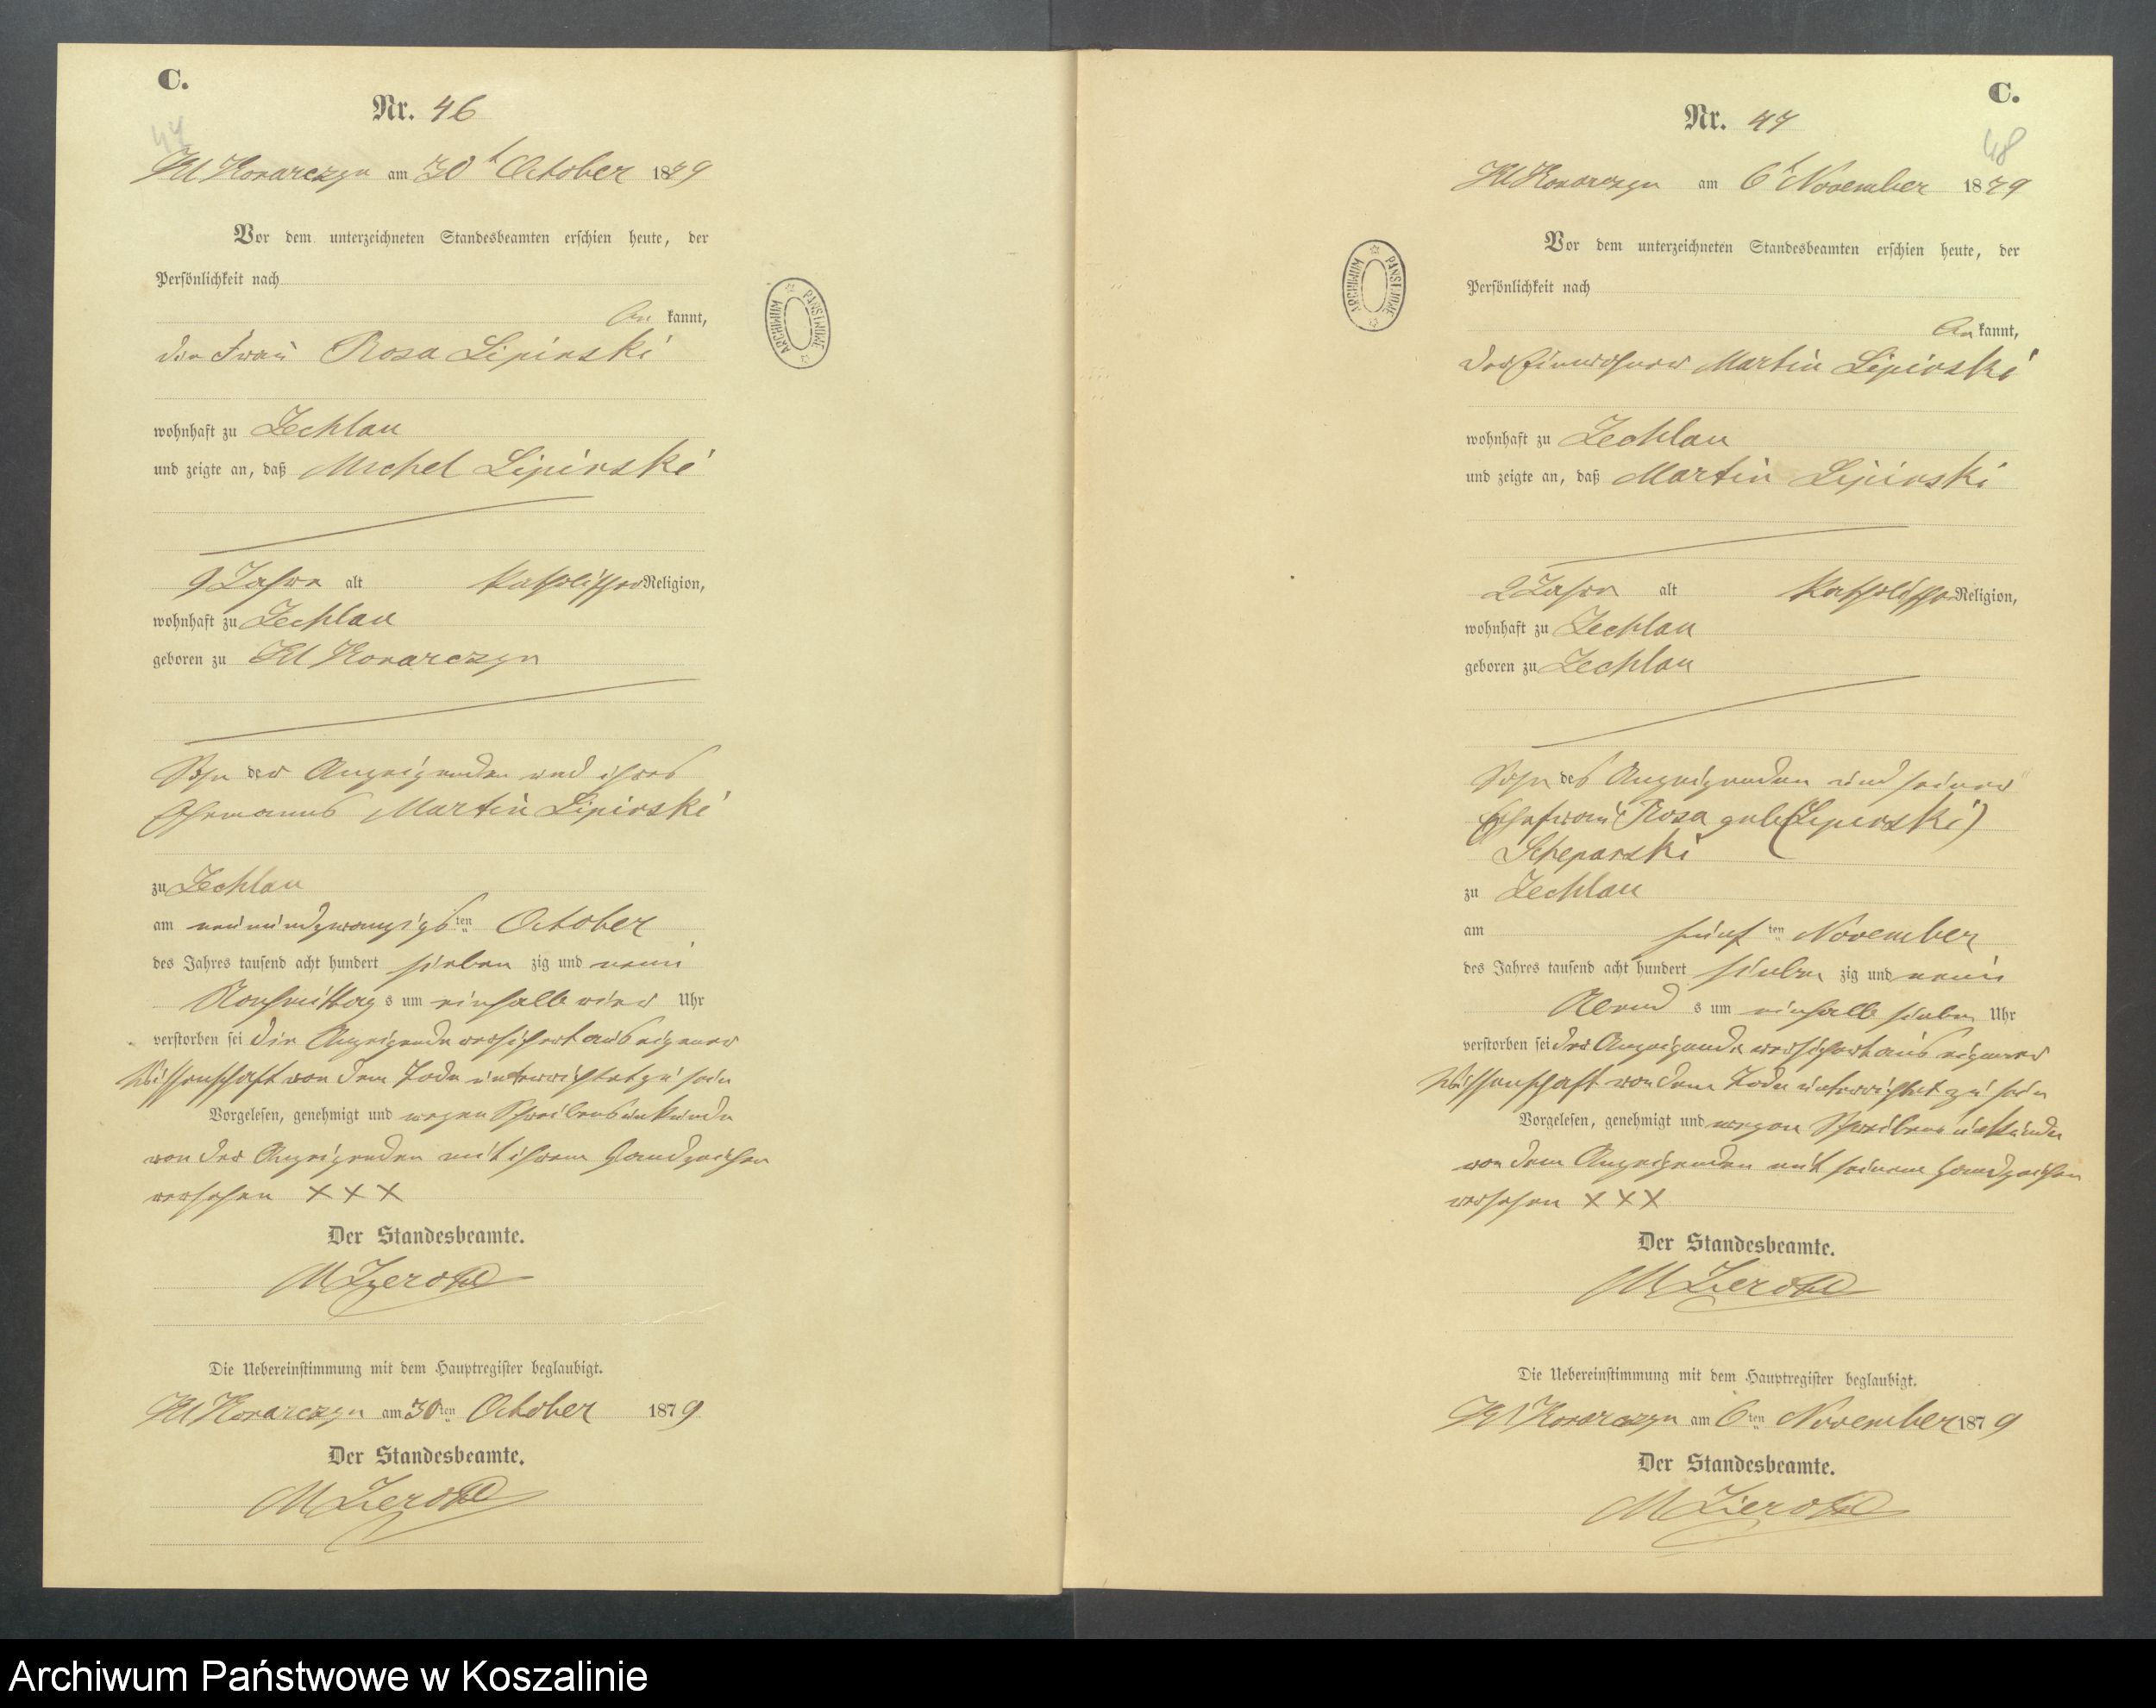 C.
Nr. 46
47
Kl Konarczyn am 30t October 1879
Vor dem unterzeichneten Standesbeamten erschien heute, der
Persönlichkeit nach
an kannt,
die Frau Rosa Lipinski
wohnhaft zu Zechlau
und zeigte an, daß Michel Lipinski
9 Jahre alt katholischer Religion,
wohnhaft zu Zechlau
geboren zu Kl Konarczyn
Sohn der Anzeigenden und ihres
Ehemanns Martin Lipinski
zu Zechlau
am neunundzwanzigsten October
des Jahres tausend acht hundert sieben zig und neun
Nachmittag s um einhalb vier Uhr
verstorben sei die Anzeigende versichert aus eigener
Wissenschaft von dem Tode unterrichtet zu sein
Vorgelesen, genehmigt und wegen Schreibensunkunde
von der Anzeigenden mit ihrem Handzeichen
versehen XXX
Der Standesbeamte.
Die Uebereinstimmung mit dem Hauptregister beglaubigt.
Kl Konarczyn am 30ten October 1879
Der Standesbeamte.
ARCHIWUM PAŃSTWOWE
C.
Nr. 47
48
Kl Konarczyn am 6t November 1879
Vor dem unterzeichneten Standesbeamten erschien heute, der
Persönlichkeit nach
an kannt,
der Einwohner Martin Lipinski
wohnhaft zu Zechlau
und zeigte an, daß Martin Lipinski
2 Jahre alt katholischer Religion,
wohnhaft zu Zechlau
geboren zu Zechlau
Sohn des Anzeigenden und seiner
Ehefrau Rosa geb (Lipinski)
zu Zechlau
am fünf ten November
des Jahres tausend acht hundert sieben zig und neun
Abend s um einhalb sieben Uhr
verstorben sei der Anzeigende versichert aus eigener
Wissenschaft von dem Tode unterrichtet zu sein
Vorgelesen, genehmigt und wegen Schreibens unkunde
von dem Anzeigenden mit seinem Handzeichen
versehen XXX
Der Standesbeamte.
Die Uebereinstimmung mit dem Hauptregister beglaubigt.
Kl Konarczyn am 6ten November 1879
Der Standesbeamte.
ARCHIWUM PAŃSTWOWE
Archiwum Państwowe w Koszalinie